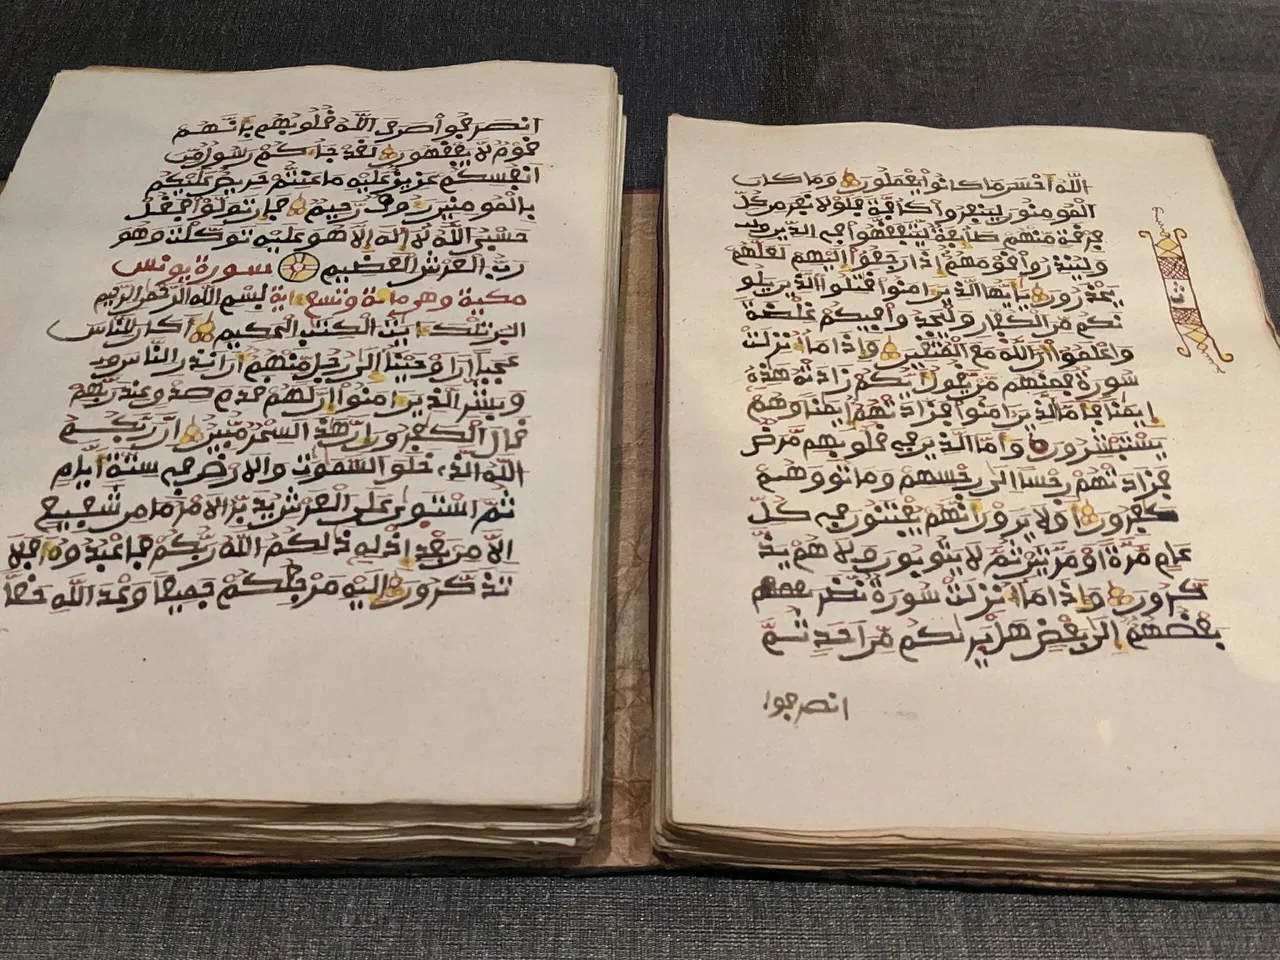 الله احسن ما كانوا يعملون وما كان
المومنون لينفروا كافة فلولا نفر من كل
فرقة منهم طائفة ليتفقهوا في الدين
ولينذروا قومهم اذا رجعوا اليهم لعلهم
يحذرون يايها الذين امنوا قتلوا الذين يلو
نكم من الكفار وليجدوا فيكم غلظة
واعلموا ان الله مع المتقين واذا ما انزلت
سورة فمنهم من يقول ايكم زادته هذه
ايمنا فاما الذين امنوا فزادتهم ايمنا وهم
يستبشرون واما الذين في قلوبهم مرض
فزادتهم رجسا الى رجسهم وماتوا وهم
كفرون اولا يرون انهم يفتنون في كل
عام مرة او مرتين ثم لا يتوبون ولا هم يذ
كرون واذا ما انزلت سورة نظر
بعضهم الى بعض هل يريكم من احد ثم
انصرفوا
انصرفوا صرف الله قلوبهم بانهم
قوم لا يفقهون لقد جاءكم رسول من
انفسكم عزيز عليه ما عنتم حريص عليكم
بالمومنين روف رحيم فان تولوا فقل
حسبي الله لا اله الا هو عليه توكلت وهو
رب العرش العظيم سورة يونس
مكية وهي ماية وتسع اية بسم الله الرحمن الرحيم
الر تلك ايت الكتب الحكيم اكان للناس
عجبا ان اوحينا الى رجل منهم ان انذر الناس
وبشر الذين امنوا ان لهم قدم صدق عند ربهم
قال الكفرون ان هذا لسحر مبين ان ربكم
الله الذي خلق السموت والارض في ستة ايام
ثم استوى على العرش يدبر الامر ما من شفيع
الا من بعد اذنه ذلكم الله ربكم فاعبدوه افلا
تذكرون اليه مرجعكم جميعا وعد الله حقا